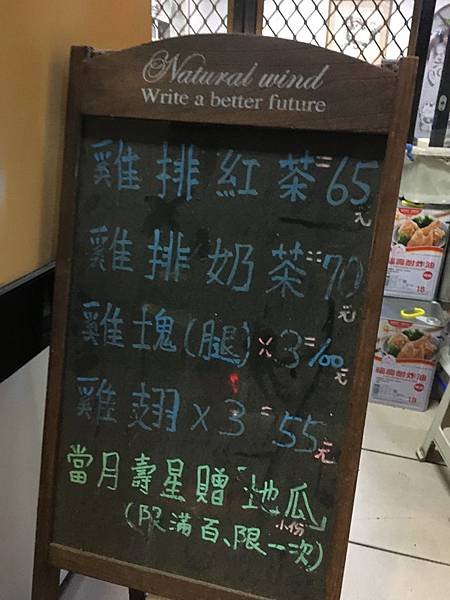 Natural wind
Write a better future
雞排紅茶=65元
雞排奶茶=70元
雞塊(腿)×3=100元
雞翅×3=55元
當月壽星贈「地瓜」小份
(限滿百、限一次)
福壽耐炸油
18
福壽耐炸油
18